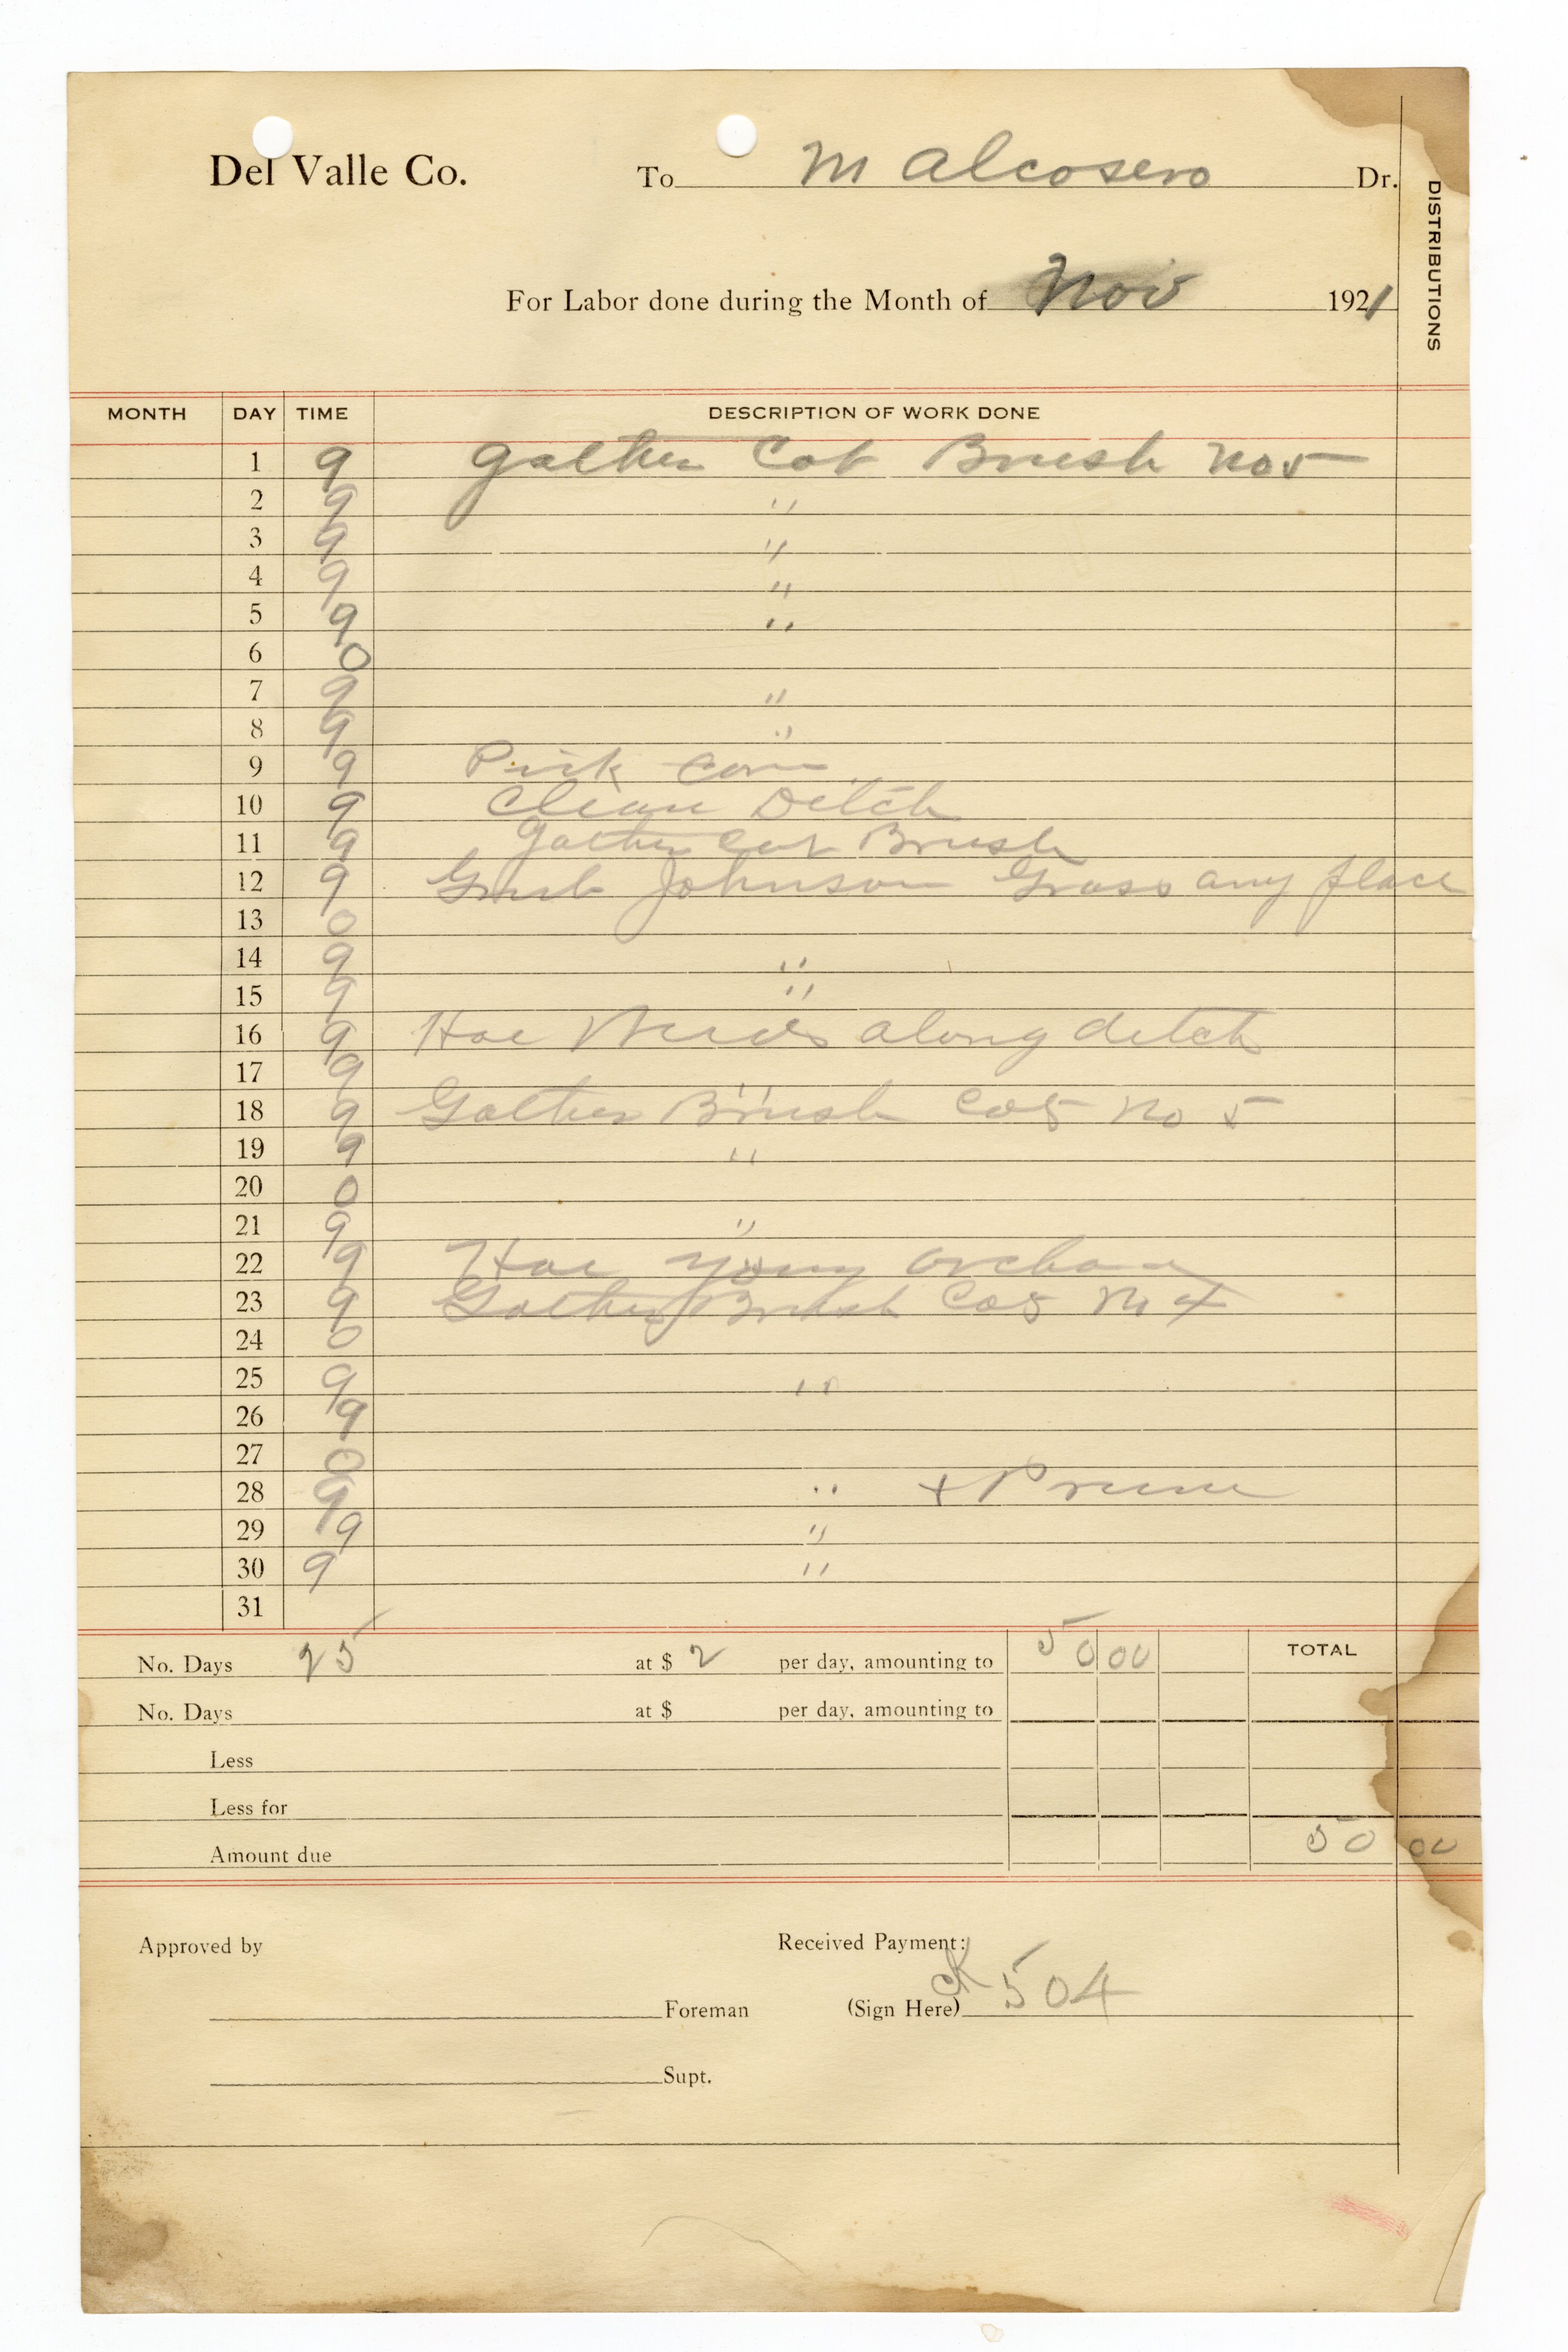 Del Valle Co. To M Alcosero Dr.
DISTRIBUTIONS
For Labor done during the Month of Nov 1921
MONTH DAY TIME DESCRIPTION OF WORK DONE
1 9 Gather Cot Brush No 5
2 9 "
3 9 "
4 9 "
5 9 "
6 0
7 9 "
8 9 "
9 9 Pick Corn
10 9 Clean Ditch
11 9 Gather Cot Brush
12 9 Grub Johnson Grass any place
13 0
14 9 "
15 9 "
16 9 Hoe Weeds along ditch
17 9 "
18 9 Gather Brush Cots No 5
19 9 "
20 0
21 9 "
22 9 Hoe young orchard
23 9 Gather Brush Cots No 4
24 0
25 9 "
26 9
27 0
28 9 " + Prune
29 9 "
30 9 "
31
No. Days 25 at $ 2 per day, amounting to 50 00 TOTAL
No. Days at $ per day, amounting to
Less
Less for
Amount due 50 00
Approved by Received Payment:
Foreman (Sign Here) CK 504
Supt.